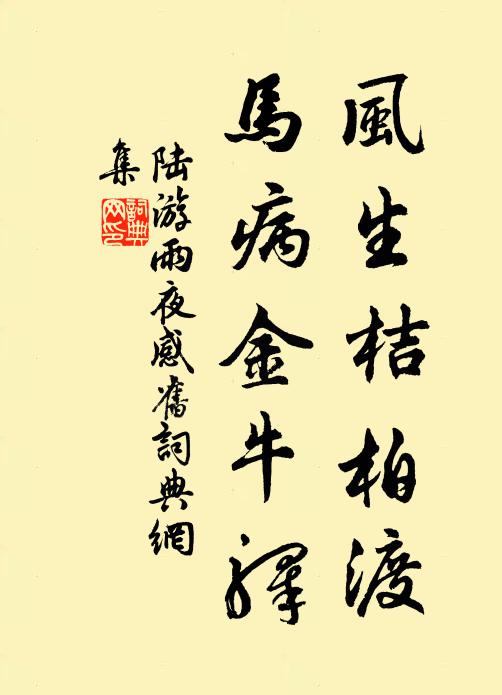 風生桔柏渡
馬病金牛驛
陆游雨夜感舊詞典網
集
詞典
网印